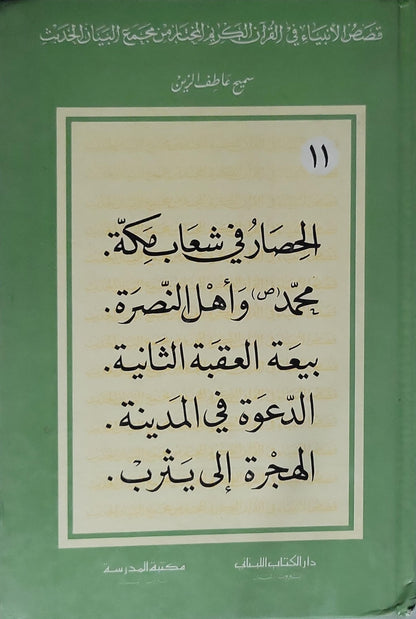 قصص الأنبياء في القرآن الكريم المختار من مجمع البيان الحديث
سميح عاطف الزين
١١
الحِصَارُ في شعَاب مَكّة .
محمّد (ص) وَأهْل النّصرَة .
بيعَة العقبَة الثانيَة .
الدّعوَة في المَدينَة .
الهجْرَة إلى يَثربْ .
دار الكتاب اللبناني
مكتبة المدرسة